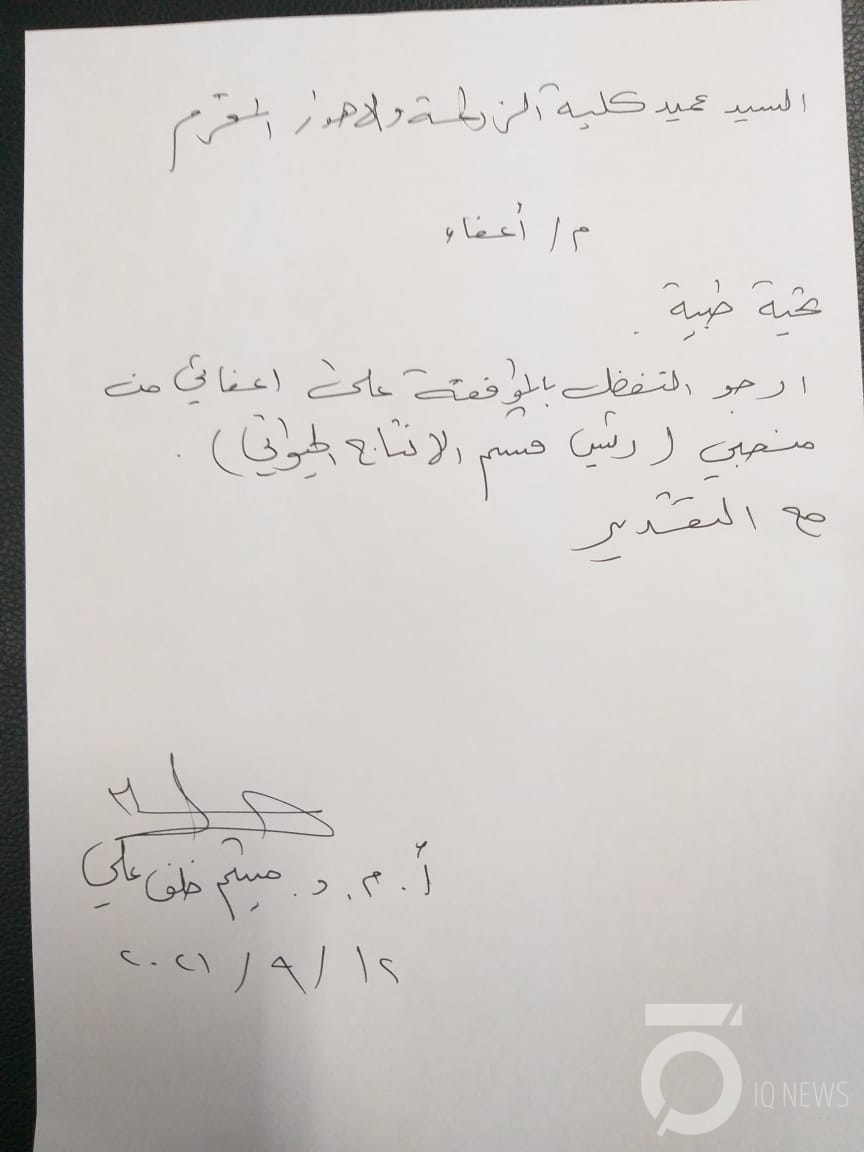 السيد عميد كلية الزراعة والاهوار المحترم
م/ أعفاء
تحية طيبة .
ارجو التفضل بالموافقة على اعفائي من
منصبي (رئيس قسم الانتاج الحيواني) .
مع التقدير
أ. م. د. ميثم خلف علي
١٢ / ٩ / ٢٠٢١
IQ NEWS